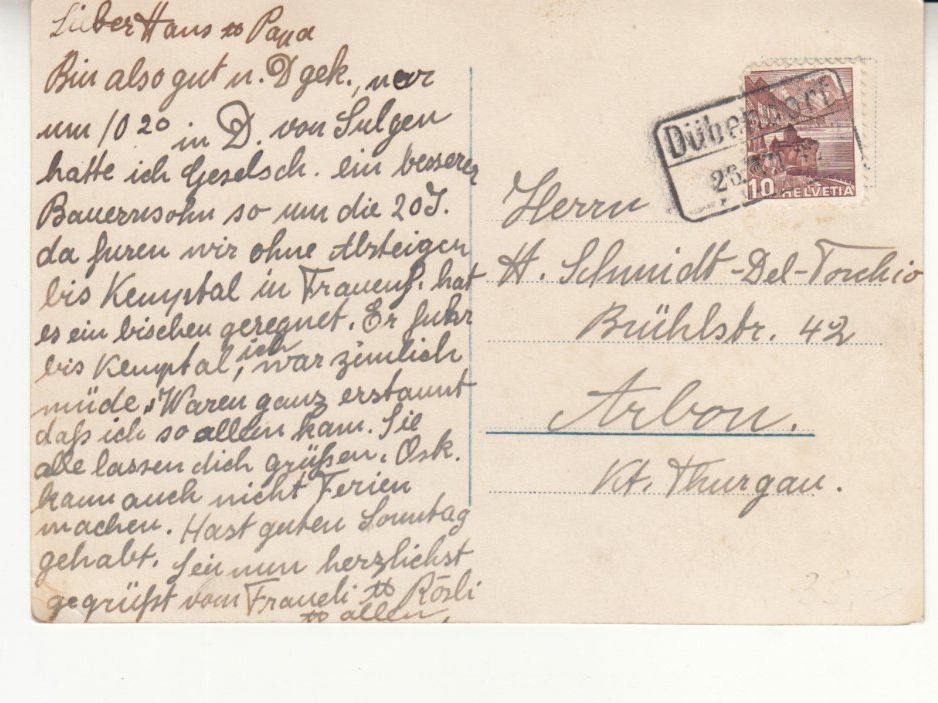 Lieber Hans & Papa
Bin also gut n. D gek., war
um 10 20 in D. von Sulgen
hatte ich Geselsch. ein besserer
Bauernsohn so um die 20 J.
da furen wir ohne Absteigen
bis Kemptal in Frauenf. hat
es ein bischen geregnet. Er fuhr
bis Kemptal, ich war zimlich
müde. Waren ganz erstaunt
daß ich so allein kam. Sie
alle lassen dich grüßen. Osk.
kann auch nicht Ferien
machen. Hast guten Sonntag
gehabt. Sei nun herzlichst
gegrüßt vom Fraueli & Rösli
& allen.
Dübendorf
10 HELVETIA
Herrn
H. Schmidt-Del-Torchio
Brühlstr. 42
Arbon.
Kt. Thurgau.